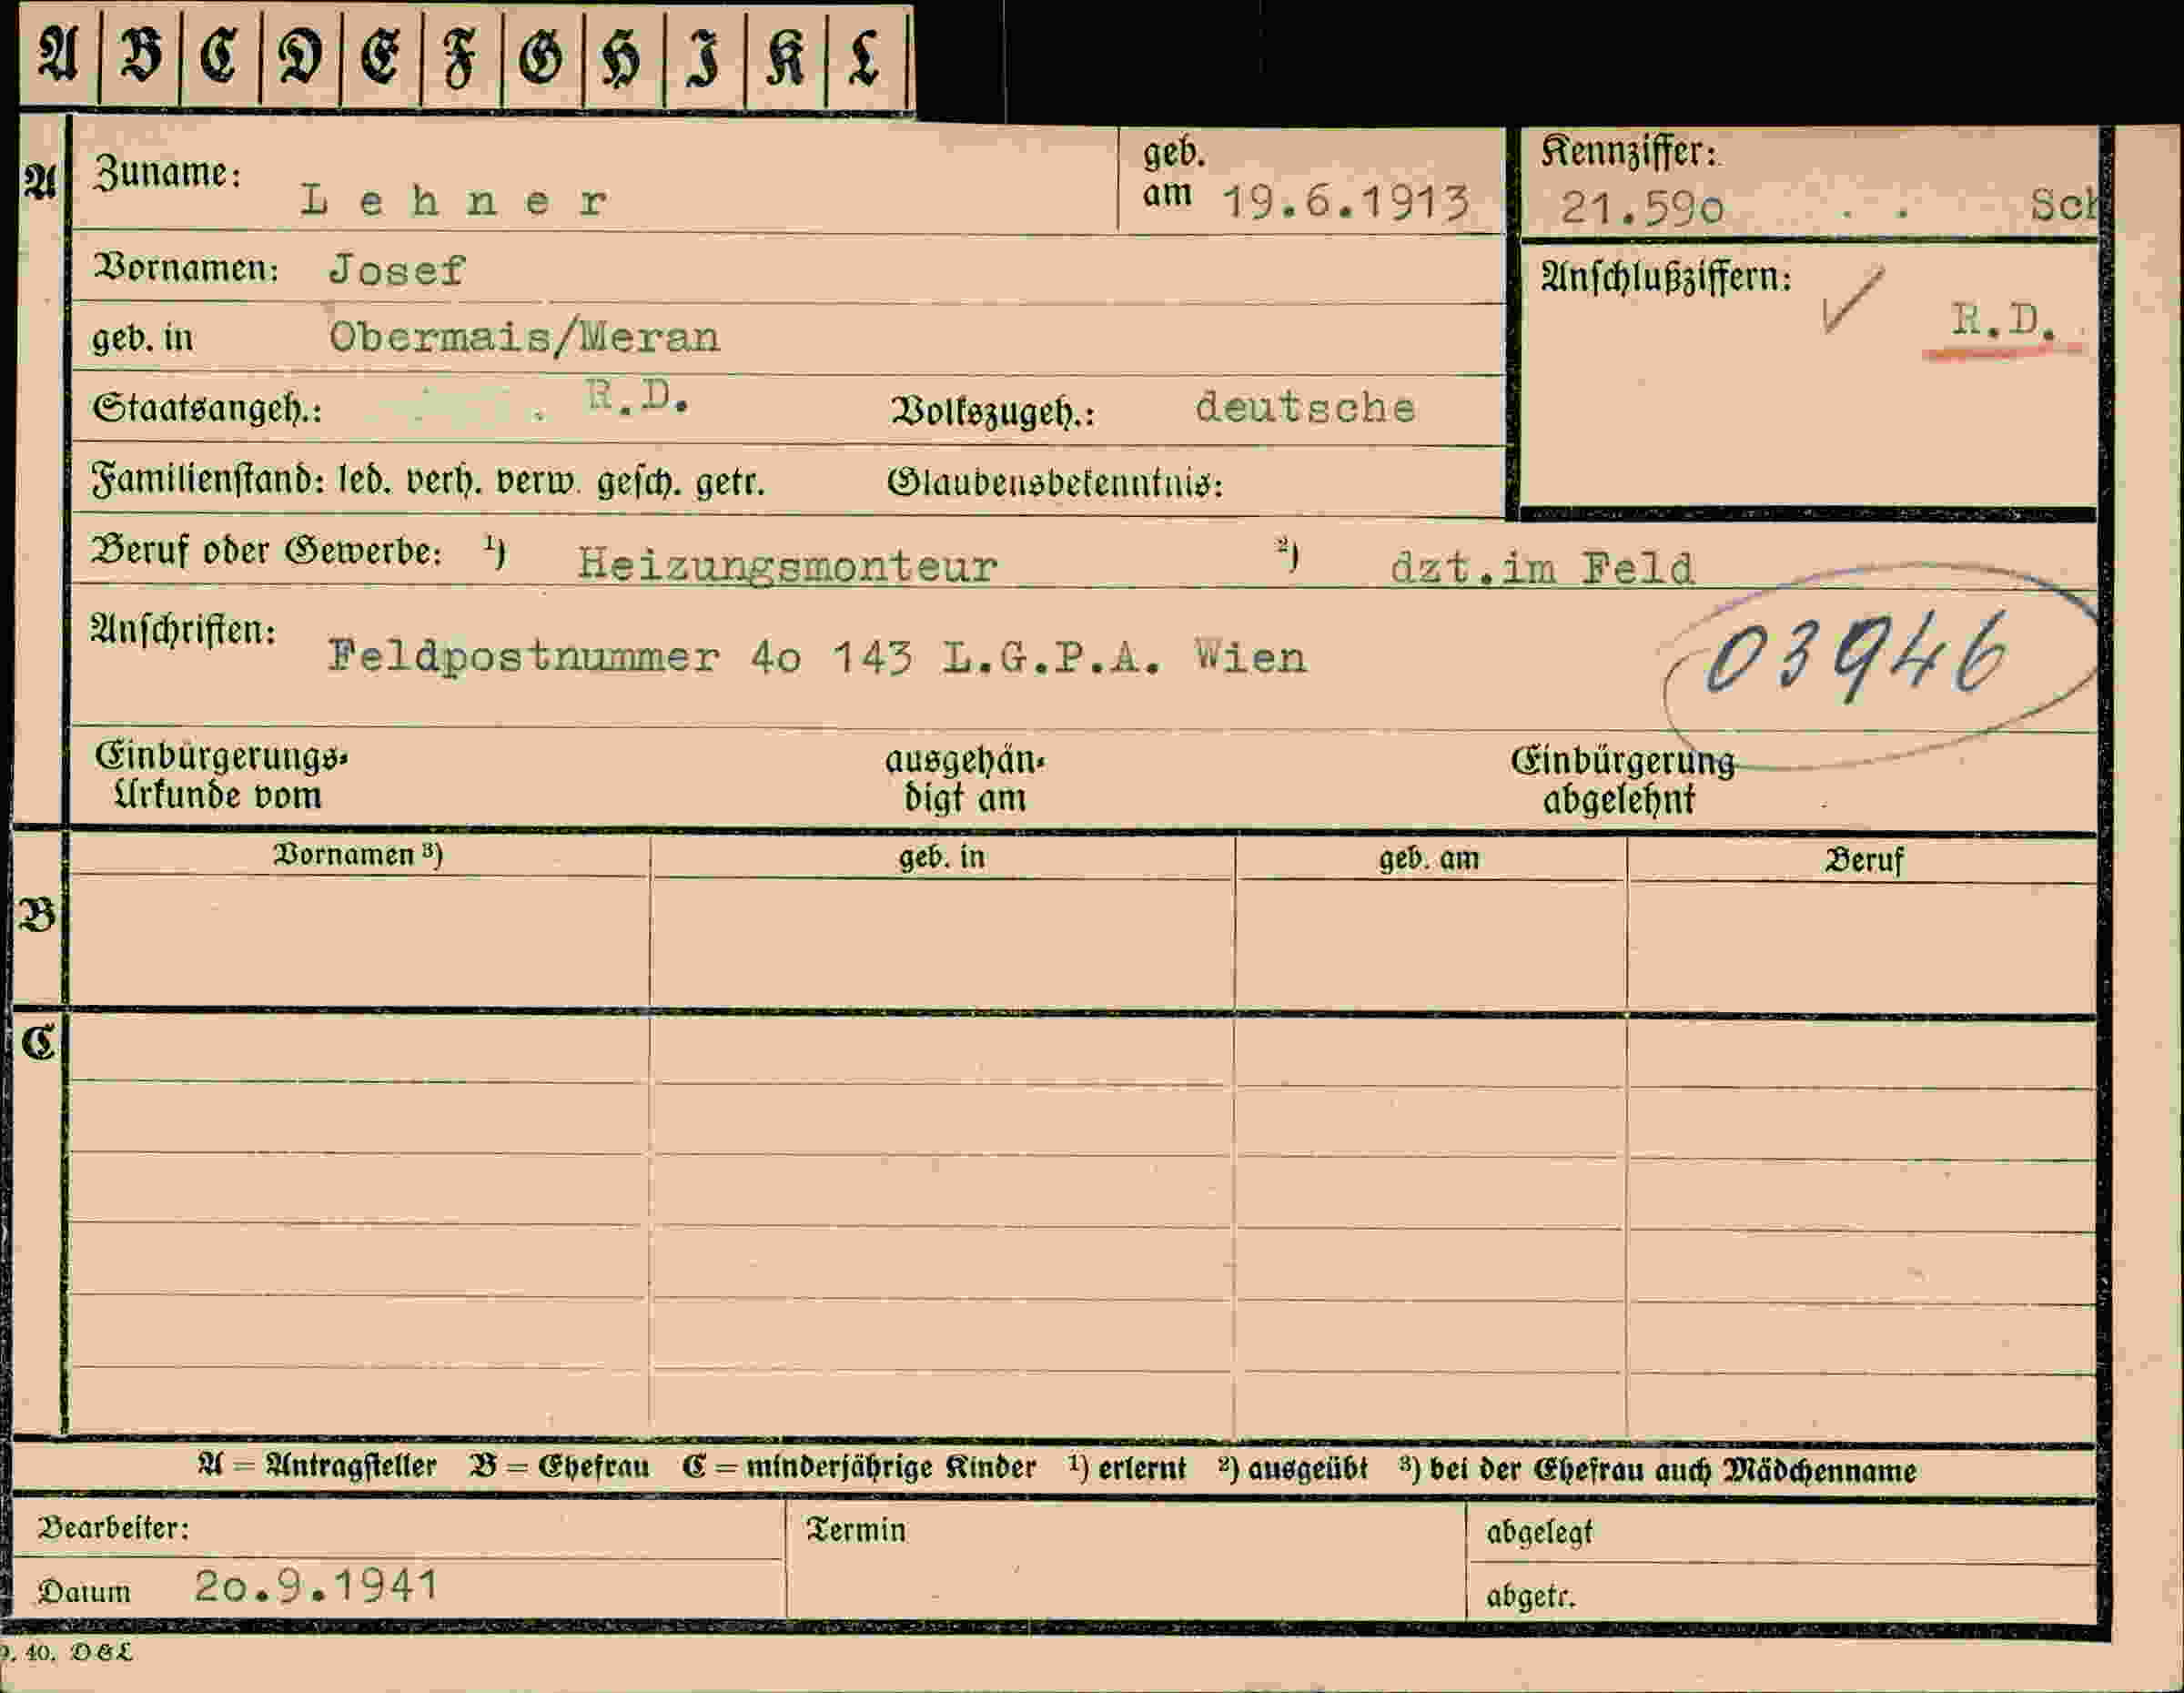 A B C D E F G H I K L
A Zuname: Lehner geb. am 19.6.1913 Kennziffer: 21.59o . . Sch
Vornamen: Josef Anschlußziffern: ✓ R.D.
geb. in Obermais/Meran
Staatsangeh.: . R.D. Volkszugeh.: deutsche
Familienstand: led. verh. verw. gesch. getr. Glaubensbekenntnis:
Beruf oder Gewerbe: 1) Heizungsmonteur 2) dzt.im Feld
Anschriften: Feldpostnummer 4o 143 L.G.P.A. Wien 03946
Einbürgerungs- ausgehän- Einbürgerung
Urkunde vom digt am abgelehnt
Vornamen 3) geb. in geb. am Beruf
B
C
A = Antragsteller B = Ehefrau C = minderjährige Kinder 1) erlernt 2) ausgeübt 3) bei der Ehefrau auch Mädchenname
Bearbeiter: Termin abgelegt
Datum 2o.9.1941 abgetr.
40. D&L